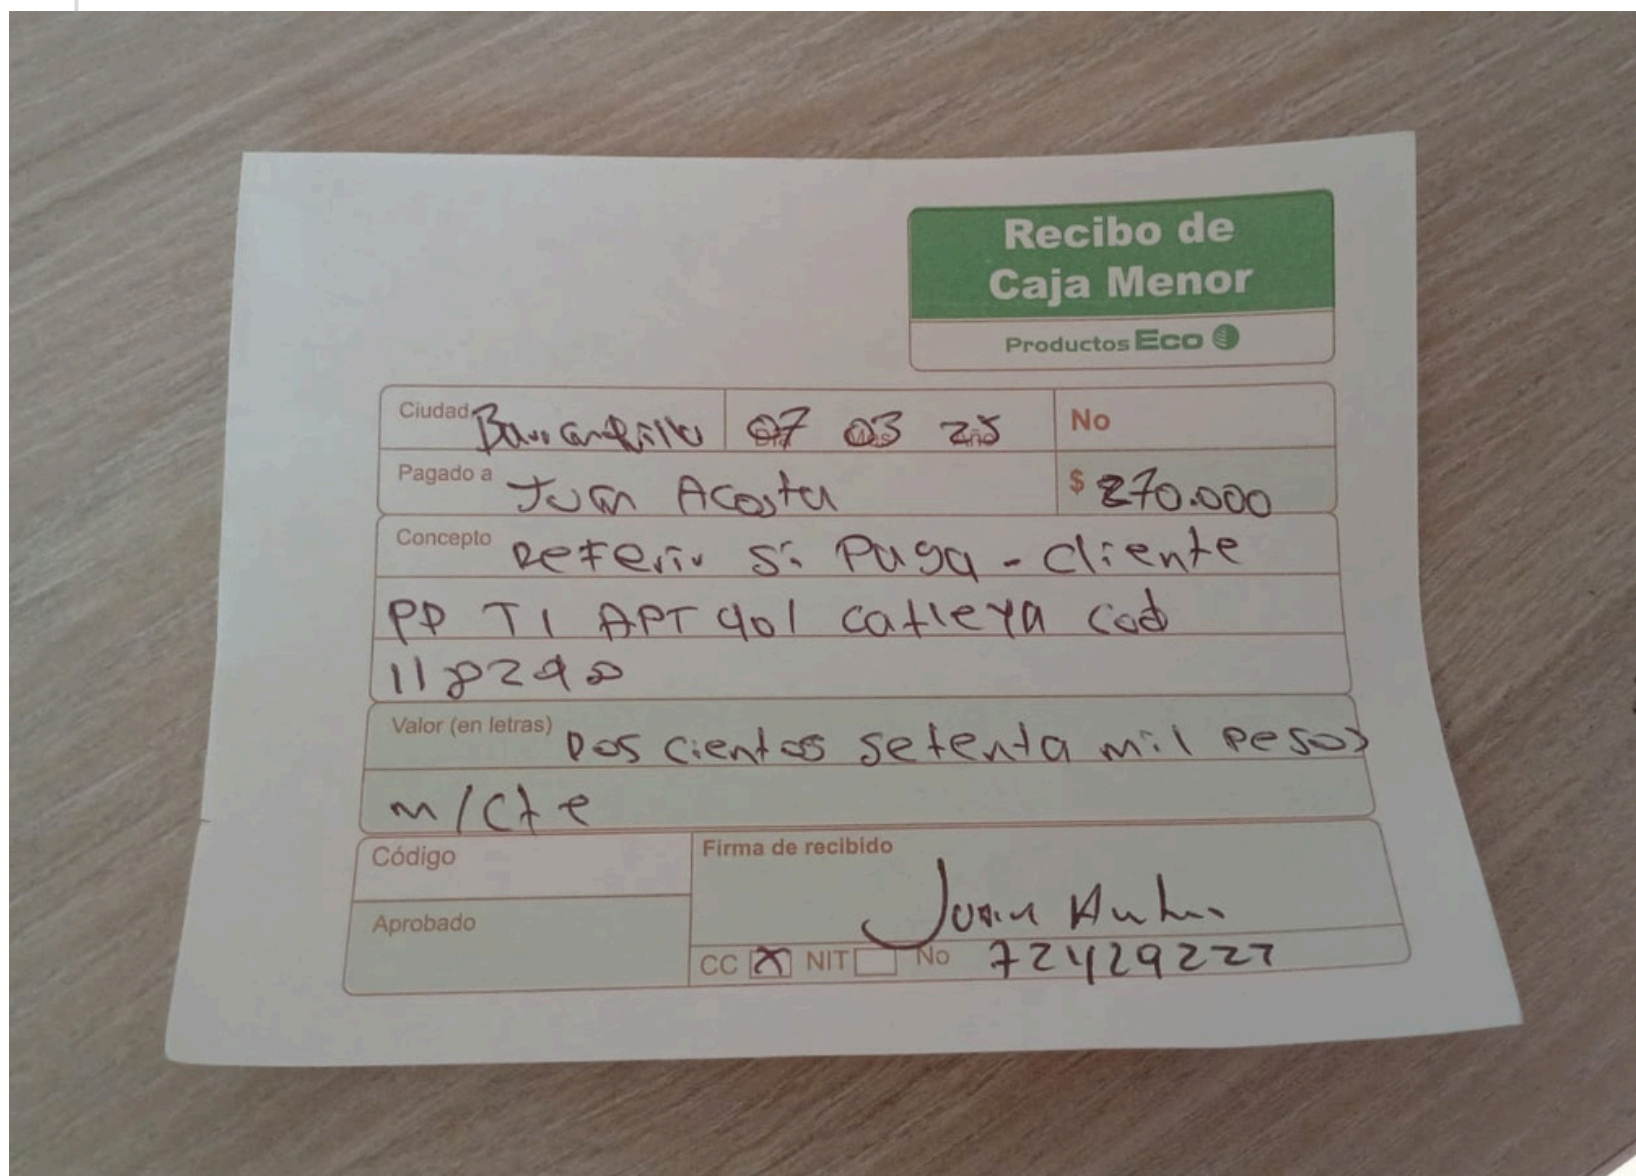 Recibo de
Caja Menor
Productos Eco
Ciudad Barranquilla 07 03 25 No
Pagado a Juan Acosta $ 270.000
Concepto Referir si Paga - cliente
PP T1 APT 401 catleya cod
118298
Valor (en letras) Dos cientos setenta mil pesos
m/cte
Código
Firma de recibido
Juan
Aprobado
CC X NIT No